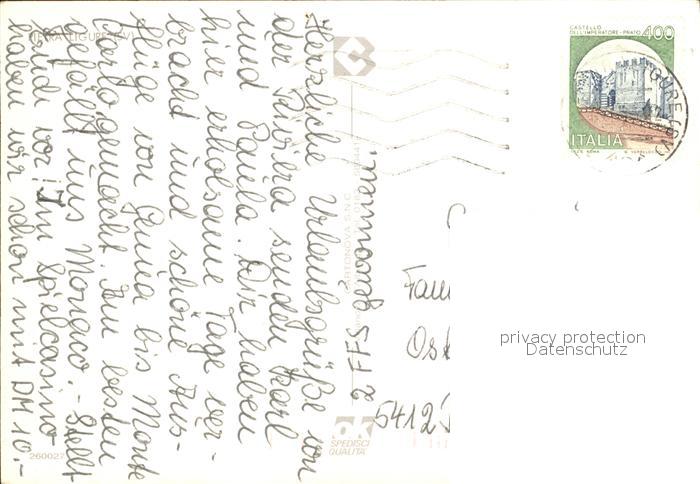 Herzliche Urlaubsgrüße von
der Riviera senden Karl
und Paula. Wir haben
hier erholsame Tage ver-
bracht und schöne Aus-
flüge von Genua bis Monte
Carlo gemacht. Am besten
gefällt uns Monaco. - Stellt
Euch vor! Im Spielcasino
haben wir schon mit DM 10.-
2 FFS gewonnen!
PIETRA LIGURE (SV)
260027
CARTONOVA S.N.C.
ok
SPEDISCI
QUALITA'
CASTELLO
DELL'IMPERATORE - PRATO
400
ITALIA
LIGURE (SV)
Fam
Ost
5412
privacy protection
Datenschutz